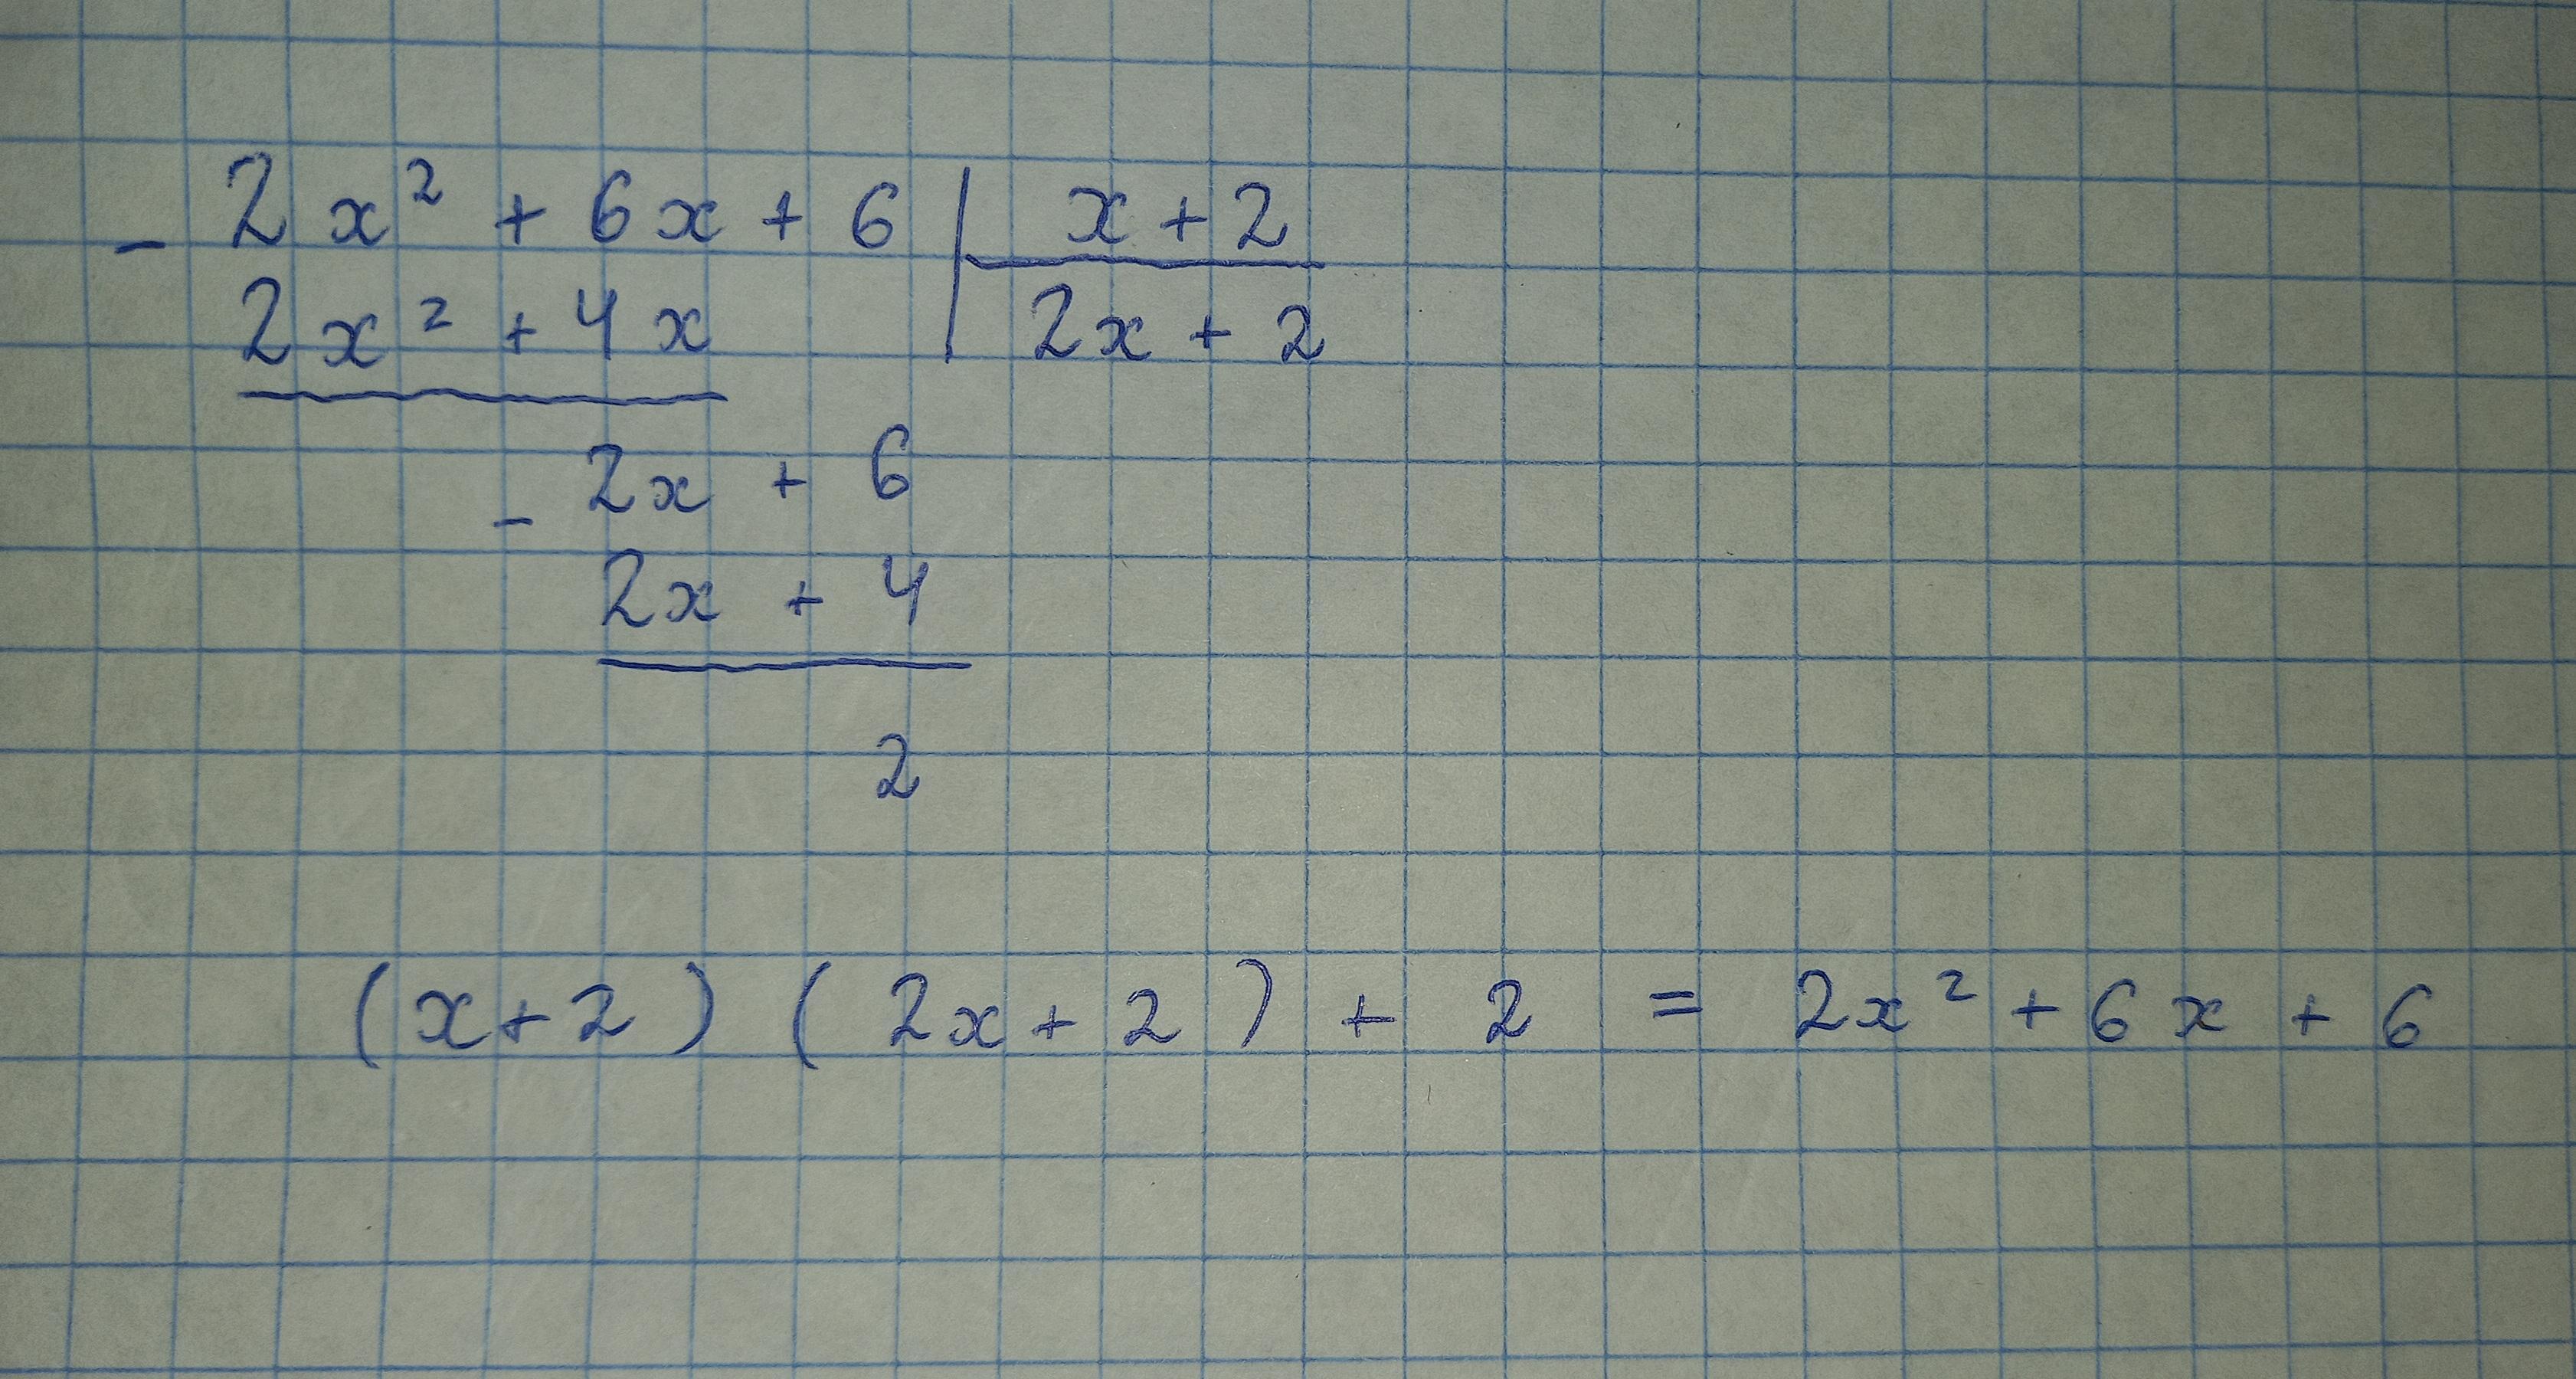 - 2x² + 6x + 6 | x + 2
2x² + 4x | 2x + 2
- 2x + 6
2x + 4
2
(x+2) (2x+2) + 2 = 2x² + 6x + 6